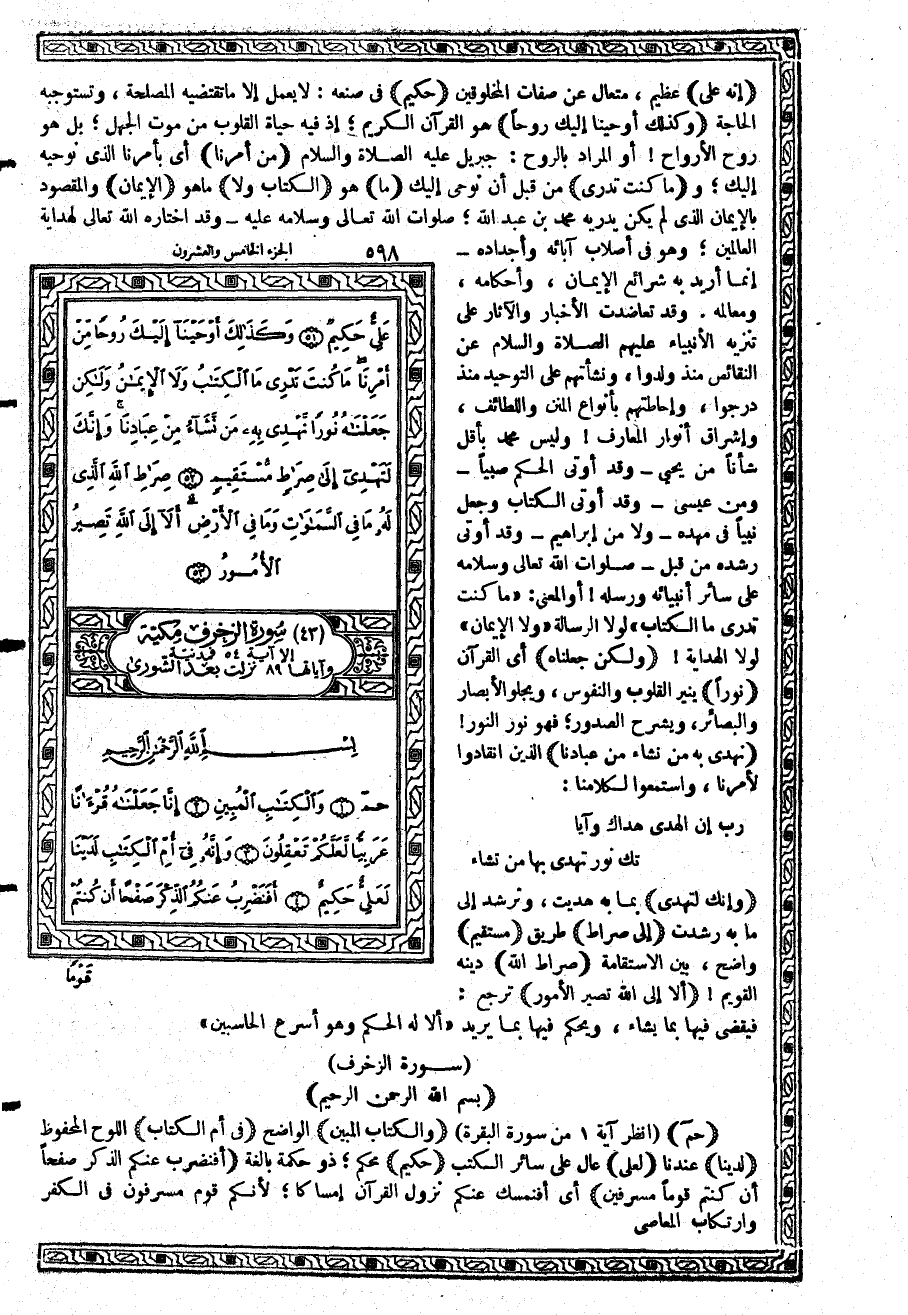 (إنه على) عظيم ، متعال عن صفات المخلوقين (حكيم) فى صنعه : لا يعمل إلا ماتقتضيه المصلحة ، وتستوجبه
الحاجة (وكذلك أوحينا إليك روحاً) هو القرآن الكريم ؛ إذ فيه حياة القلوب من موت الجهل ؛ بل هو
روح الأرواح ! أو المراد بالروح : جبريل عليه الصلاة والسلام (من أمرنا) أى بأمرنا الذى نوحيه
إليك ؛ و (ما كنت تدرى) من قبل أن نوحى إليك (ما) هو (الكتاب ولا) ماهو (الإيمان) والمقصود
بالإيمان الذى لم يكن يدريه محمد بن عبد الله ؛ صلوات الله تعالى وسلامه عليه – وقد اختاره الله تعالى لهداية
العالمين ؛ وهو فى أصلاب آبائه وأجداده –
إنما أريد به شرائع الإيمان ، وأحكامه ،
ومعالمه . وقد تعاضدت الأخبار والآثار على
تنزيه الأنبياء عليهم الصلاة والسلام عن
النقائص منذ ولدوا ، ونشأتهم على التوحيد منذ
درجوا ، وإحاطتهم بأنواع المنن واللطائف ،
وإشراق أنوار المعارف ! وليس محمد بأقل
شأناً من يحيى – وقد أوتى الحكم صبياً –
ومن عيسى – وقد أوتى الكتاب وجعل
نبياً فى مهده – ولا من إبراهيم – وقد أوتى
رشده من قبل – صلوات الله تعالى وسلامه
على سائر أنبيائه ورسله ! أوالمعنى: «ما كنت
تدرى ما الكتاب» لولا الرسالة «ولا الإيمان»
لولا الهداية ! (ولكن جعلناه) أى القرآن
(نوراً) ينير القلوب والنفوس ، ويجلو الأبصار
والبصائر، ويشرح الصدور؛ فهو نور النور!
(نهدى به من نشاء من عبادنا) الذين انقادوا
لأمرنا ، واستمعوا لكلامنا :
رب إن الهدى هداك وآيا
تك نور تهدى بها من تشاء
(وإنك لتهدى) بما به هديت ، وترشد إلى
ما به رشدت (إلى صراط) طريق (مستقيم)
واضح ، بين الاستقامة (صراط الله) دينه
القويم ! (ألا إلى الله تصير الأمور) ترجع :
الجزء الخامس والعشرون ٥٩٨
عَلِىٌّ حَكِيمٌ ۝٥١ وَكَذَٰلِكَ أَوْحَيْنَآ إِلَيْكَ رُوحًا مِّنْ
أَمْرِنَا ۚ مَا كُنتَ تَدْرِى مَا ٱلْكِتَٰبُ وَلَا ٱلْإِيمَٰنُ وَلَٰكِن
جَعَلْنَٰهُ نُورًا نَّهْدِى بِهِۦ مَن نَّشَآءُ مِنْ عِبَادِنَا ۚ وَإِنَّكَ
لَتَهْدِىٓ إِلَىٰ صِرَٰطٍ مُّسْتَقِيمٍ ۝٥٢ صِرَٰطِ ٱللَّهِ ٱلَّذِى
لَهُۥ مَا فِى ٱلسَّمَٰوَٰتِ وَمَا فِى ٱلْأَرْضِ ۗ أَلَآ إِلَى ٱللَّهِ تَصِيرُ
ٱلْأُمُورُ ۝٥٣
(٤٣) سورة الزخرف مكية
إلا آية ٥٤ فمدنية
وآياتها ٨٩ نزلت بعد الشورى
بِسْمِ ٱللَّهِ ٱلرَّحْمَٰنِ ٱلرَّحِيمِ
حمٓ ۝١ وَٱلْكِتَٰبِ ٱلْمُبِينِ ۝٢ إِنَّا جَعَلْنَٰهُ قُرْءَٰنًا
عَرَبِيًّا لَّعَلَّكُمْ تَعْقِلُونَ ۝٣ وَإِنَّهُۥ فِىٓ أُمِّ ٱلْكِتَٰبِ لَدَيْنَا
لَعَلِىٌّ حَكِيمٌ ۝٤ أَفَنَضْرِبُ عَنكُمُ ٱلذِّكْرَ صَفْحًا أَن كُنتُمْ
قَوْمًا
فيقضى فيها بما يشاء ، ويحكم فيها بما يريد «ألا له الحكم وهو أسرع الحاسبين»
(سورة الزخرف)
(بسم الله الرحمن الرحيم)
(حمٓ) (انظر آية ١ من سورة البقرة) (والكتاب المبين) الواضح (فى أم الكتاب) اللوح المحفوظ
(لدينا) عندنا (لعلى) عال على سائر الكتب (حكيم) محكم ؛ ذو حكمة بالغة (أفنضرب عنكم الذكر صفحاً
أن كنتم قوماً مسرفين) أى أفنمسك عنكم نزول القرآن إمساكا ؛ لأنكم قوم مسرفون فى الكفر
وارتكاب المعاصى